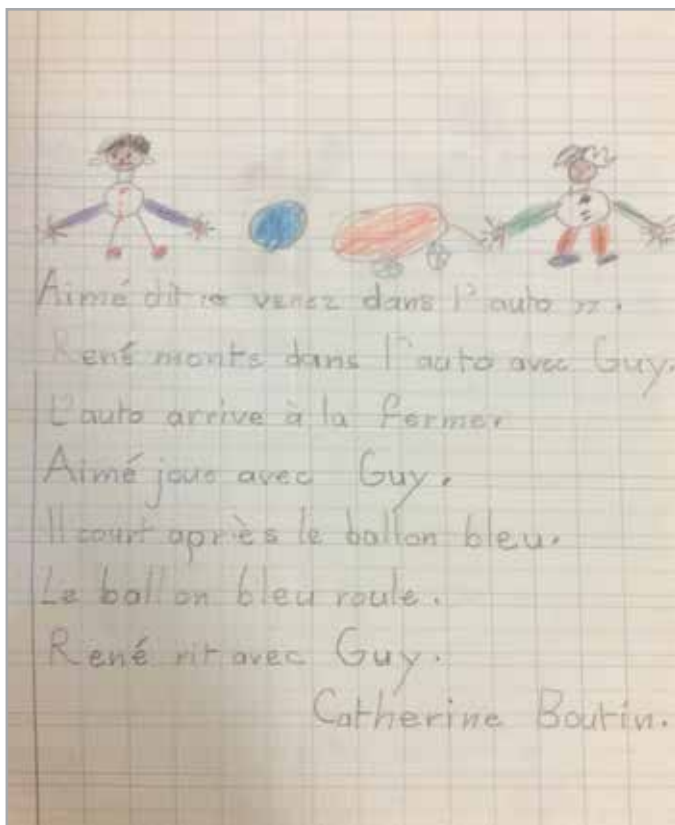 Aimé dit « venez dans l'auto ».
René monte dans l'auto avec Guy.
L'auto arrive à la ferme.
Aimé joue avec Guy.
Il court après le ballon bleu.
Le ballon bleu roule.
René rit avec Guy.
Catherine Boutin.